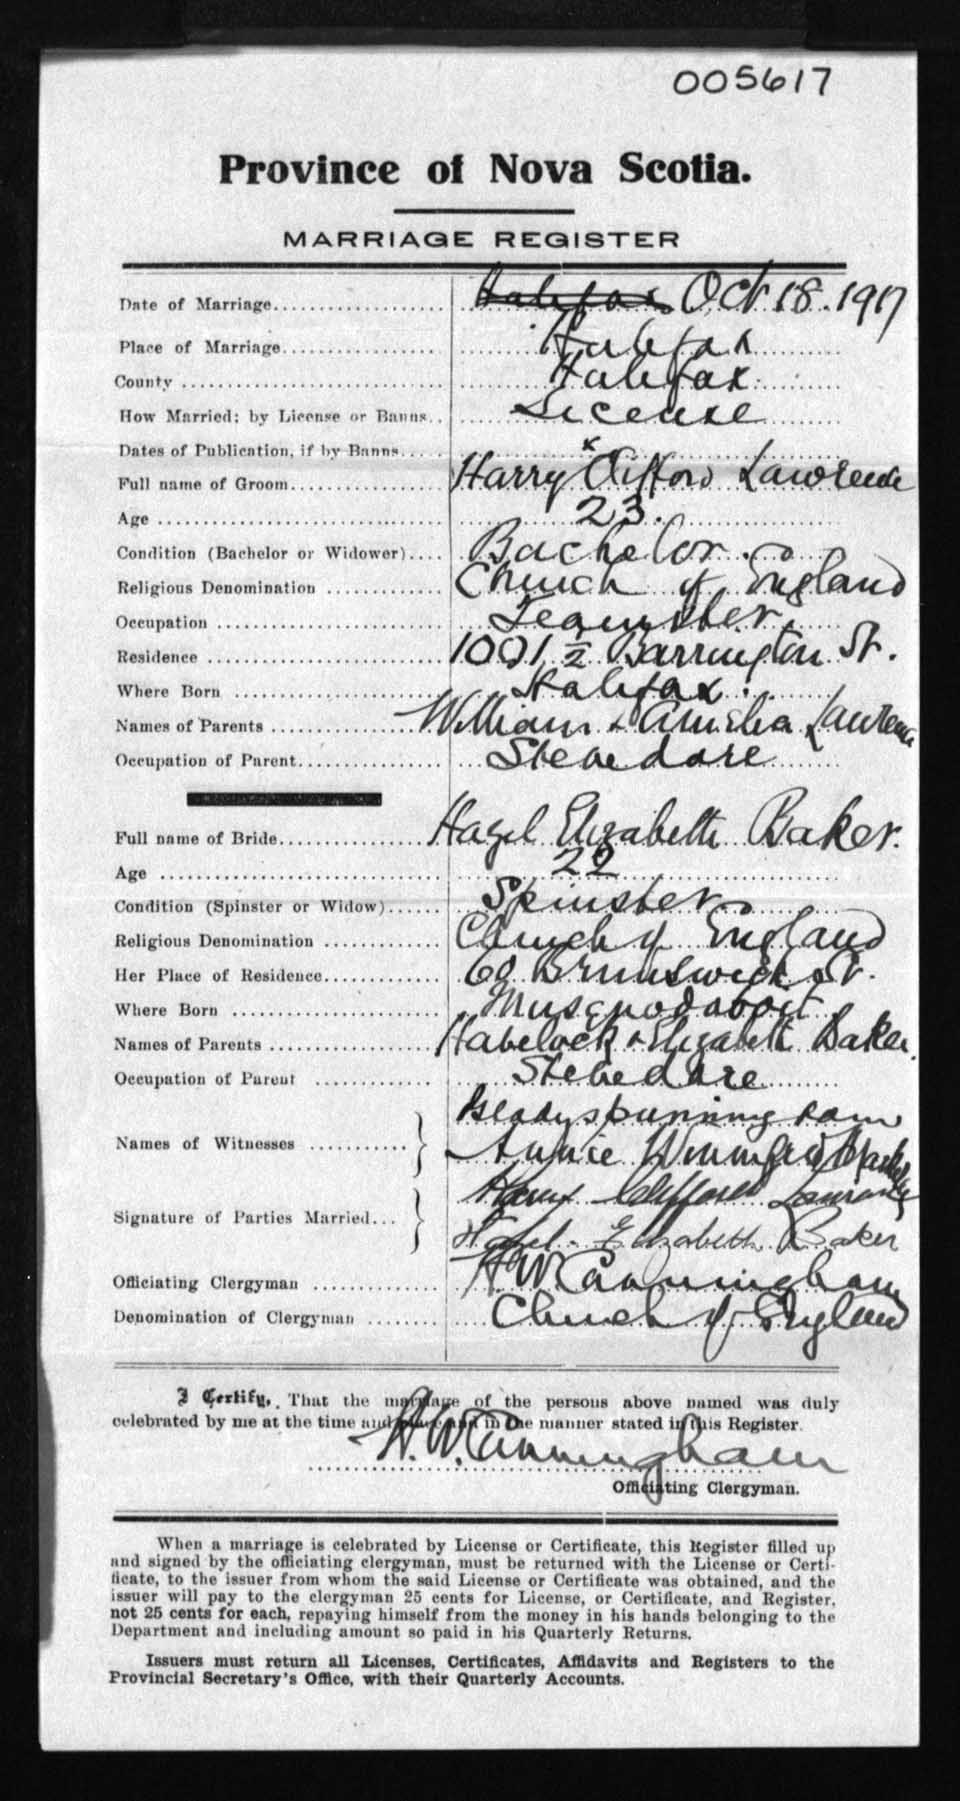 005617
Province of Nova Scotia.
MARRIAGE REGISTER
Date of Marriage Halifax Oct 18. 1917
Place of Marriage Halifax
County Halifax
How Married: by License or Banns License
Dates of Publication, if by Banns x
Full name of Groom Harry Clifford Lawrence
Age 23.
Condition (Bachelor or Widower) Bachelor.
Religious Denomination Church of England
Occupation Teamster
Residence 1001 1/2 Barrington St.
Where Born Halifax.
Names of Parents William & Amelia Lawrence
Occupation of Parent Stevedore
Full name of Bride Hazel Elizabeth Baker.
Age 22
Condition (Spinster or Widow) Spinster
Religious Denomination Church of England
Her Place of Residence 60 Brunswick St.
Where Born Musquodoboit
Names of Parents Havelock & Elizabeth Baker.
Occupation of Parent Stevedore
Gladys
Names of Witnesses Annie Winnifred
Harry Clifford
Signature of Parties Married
Hazel Elizabeth Baker
Officiating Clergyman H W Cunningham
Denomination of Clergyman Church of England
I Certify, That the marriage of the persons above named was duly
celebrated by me at the time and place and in the manner stated in this Register.
H. W. Cunningham
Officiating Clergyman.
When a marriage is celebrated by License or Certificate, this Register filled up
and signed by the officiating clergyman, must be returned with the License or Certi-
ficate, to the issuer from whom the said License or Certificate was obtained, and the
issuer will pay to the clergyman 25 cents for License, or Certificate, and Register,
not 25 cents for each, repaying himself from the money in his hands belonging to the
Department and including amount so paid in his Quarterly Returns.
Issuers must return all Licenses, Certificates, Affidavits and Registers to the
Provincial Secretary's Office, with their Quarterly Accounts.